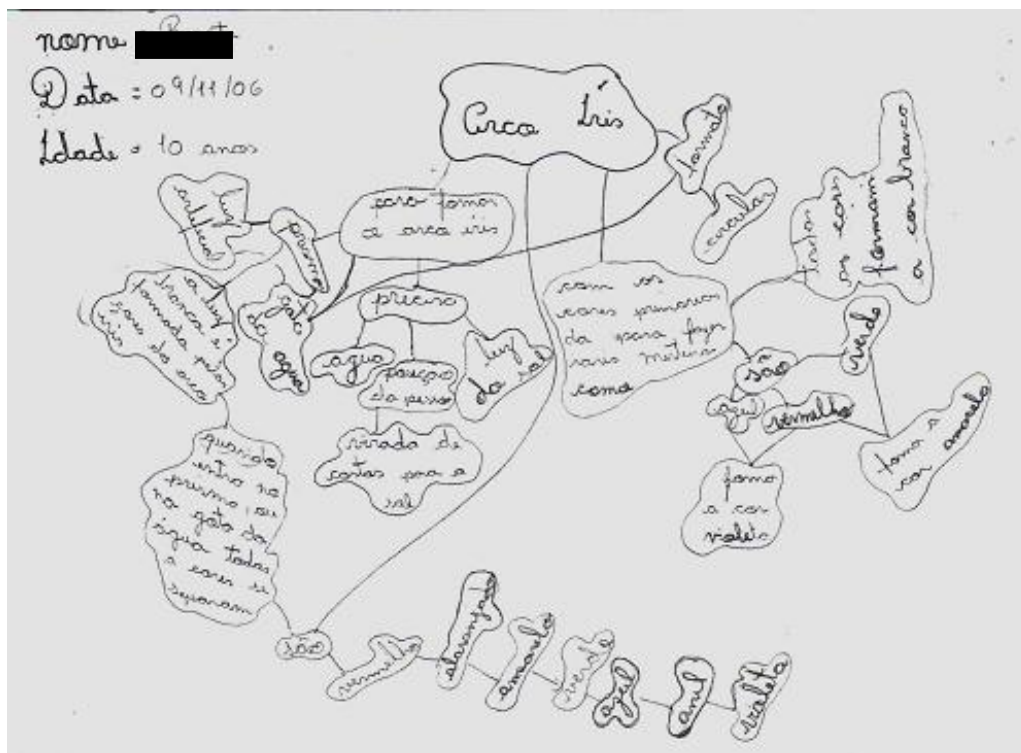 nome
Data = 09/11/06
Idade = 10 anos
Arco Íris
formato
circular
para formar
o arco iris
prisma
luz
artificial
a luz
branca é
formada pelas
cores do arco
iris
gota
de agua
preciso
agua
posição
da pessoa
luz
do sol
virada de
costas para o
sol
quando
entra no
prisma, ou
na gota da
água todas
a cores se
separam
com as
cores primarias
da para fazer
como
todas
as cores
formam
a cor branco
são
verde
azul
vermelho
forma a
cor amarelo
forma
a cor
violeta
são
vermelho
alaranjado
amarelo
verde
azul
anil
violeta